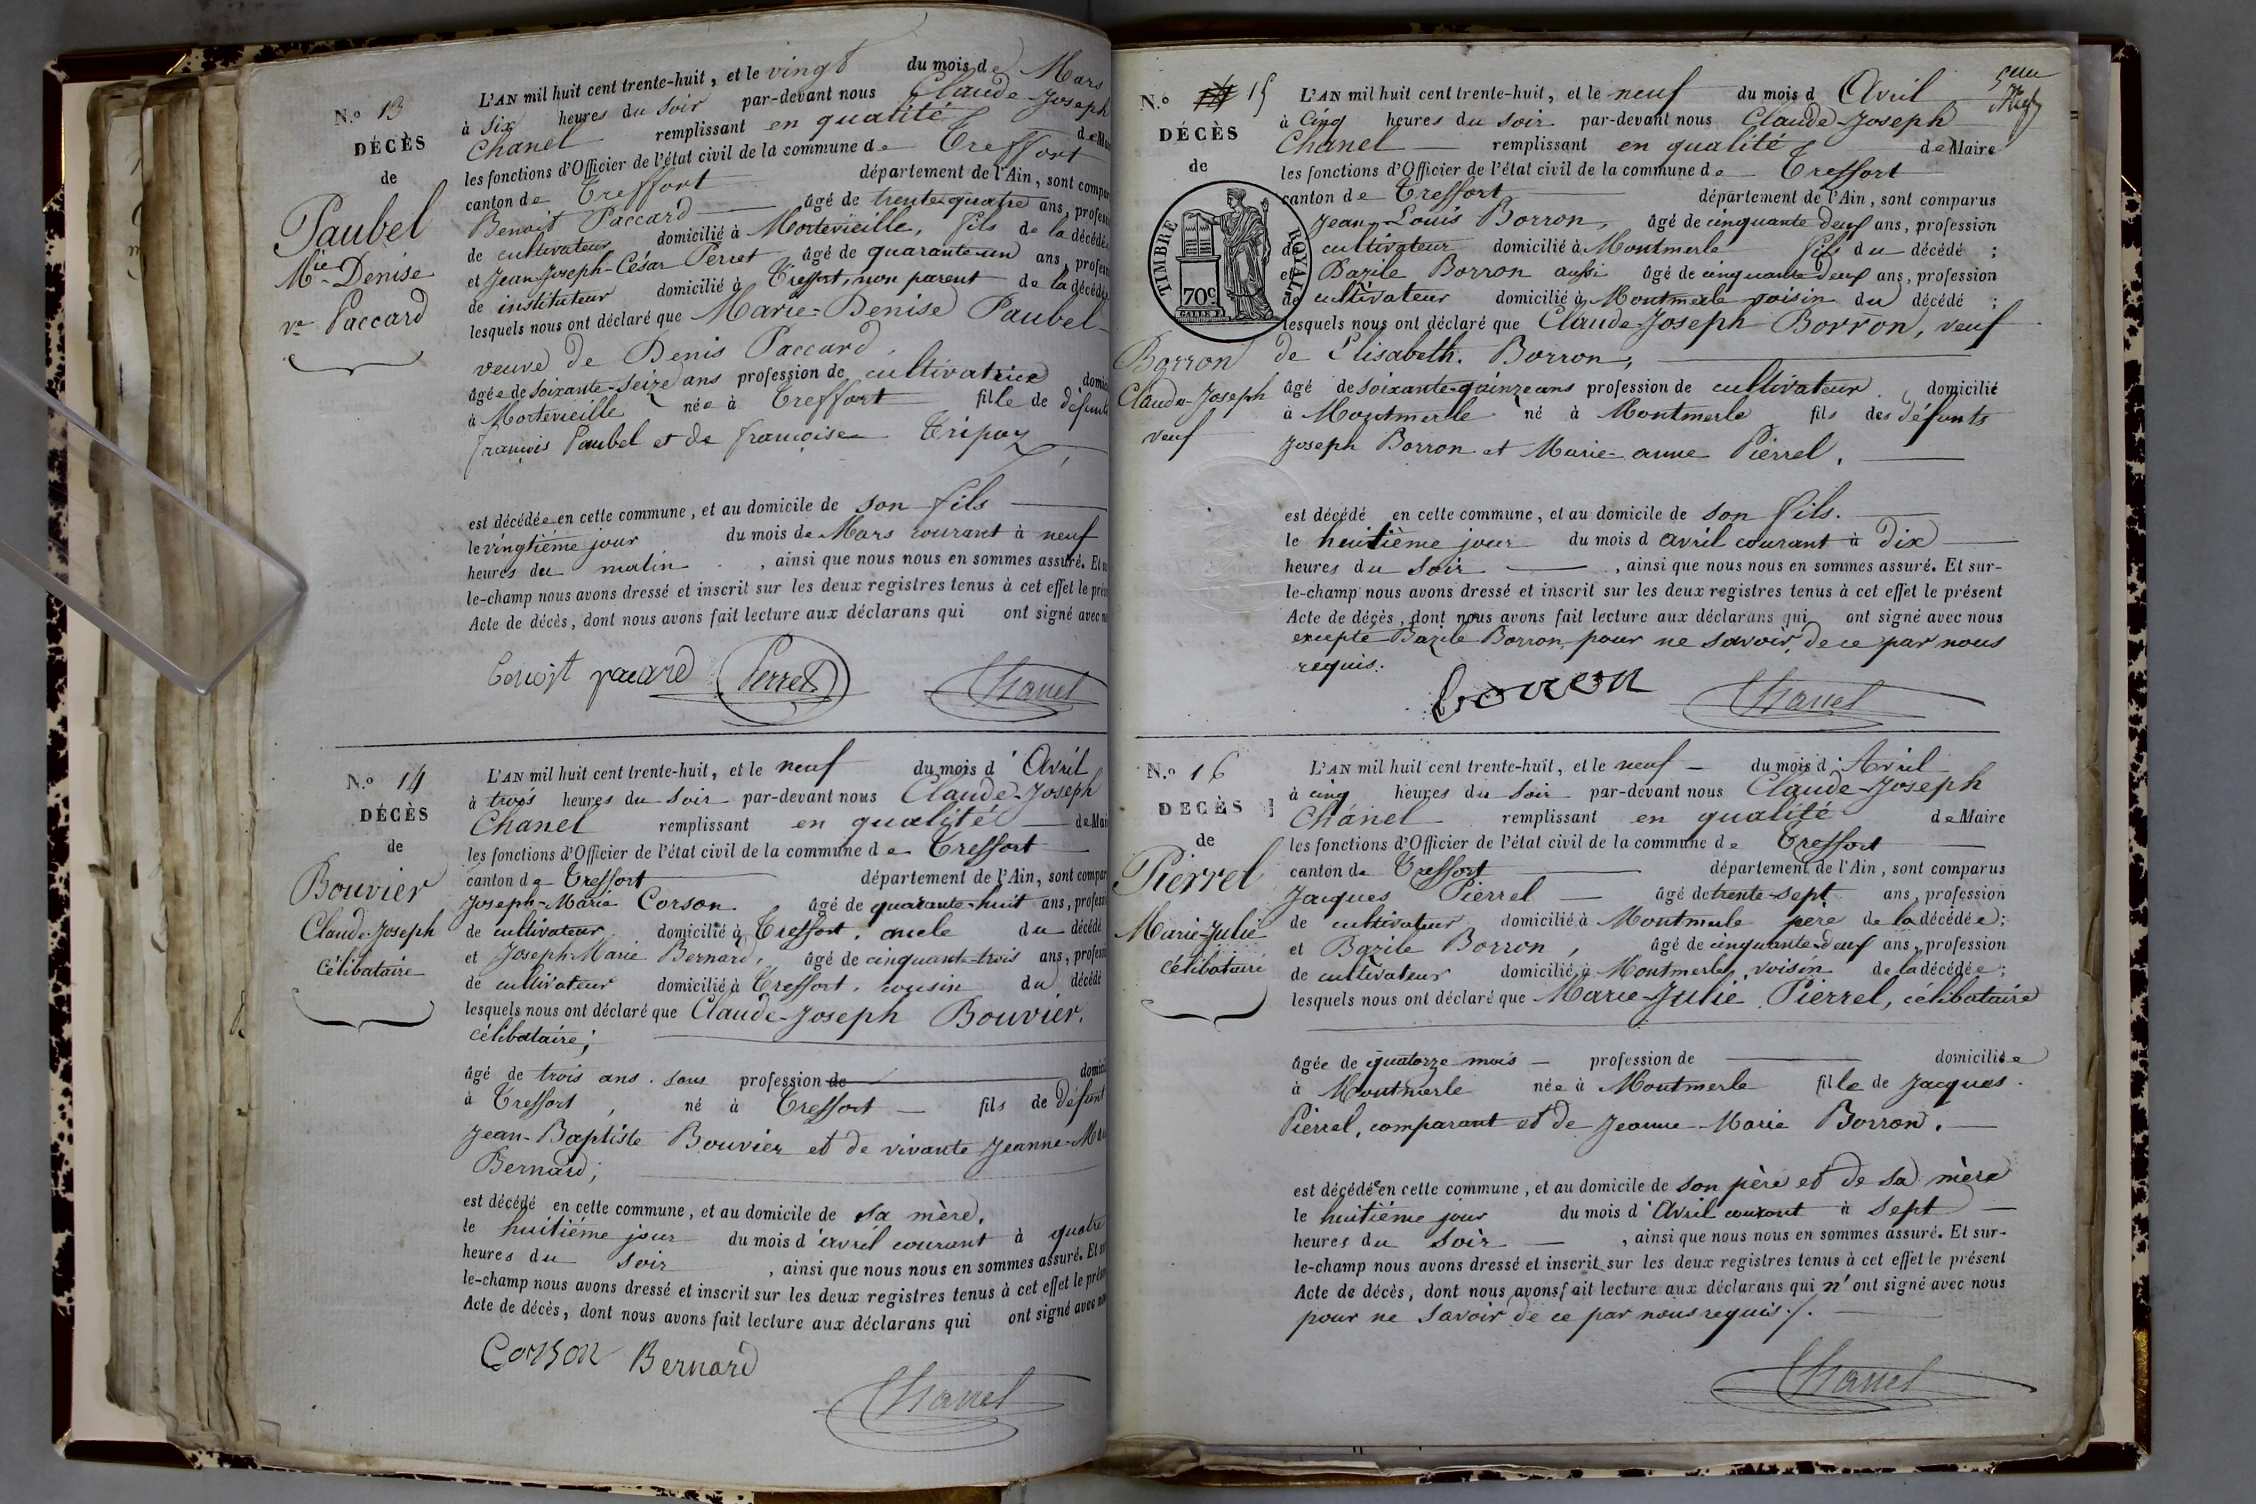 N.o 13
DÉCÈS
de
Paubel
Mie Denise
ve Paccard
L'AN mil huit cent trente-huit, et le vingt du mois de Mars
à six heures du soir par-devant nous Claude-Joseph
Chanel remplissant en qualité de
les fonctions d'Officier de l'état civil de la commune de Treffort
canton de Treffort département de l'Ain, sont
Benoit Paccard âgé de trente-quatre ans,
de cultivateur domicilié à Mortevieille, fils de la
et Jean-Joseph-César Perret âgé de quarante-un ans,
de instituteur domicilié à Treffort, non parent de la
lesquels nous ont déclaré que Marie-Denise Paubel
veuve de Denis Paccard,
âgée de soixante-seize ans profession de cultivatrice
à Mortevieille née à Treffort fille de
françois Paubel et de françoise Tripoz
est décédée en cette commune, et au domicile de son fils
le vingtième jour du mois de Mars courant à neuf
heures du matin, ainsi que nous nous en sommes assuré. Et
le-champ nous avons dressé et inscrit sur les deux registres tenus à cet effet le
Acte de décès, dont nous avons fait lecture aux déclarans qui ont signé avec
benoit pacard Perret Chanel
N.o 14
DÉCÈS
de
Bouvier
Claude-Joseph
Célibataire
L'AN mil huit cent trente-huit, et le neuf du mois d'Avril
à trois heures du soir par-devant nous Claude-Joseph
Chanel remplissant en qualité de
les fonctions d'Officier de l'état civil de la commune de Treffort
canton de Treffort département de l'Ain, sont
Joseph-Marie Corson âgé de quarante-huit ans,
de cultivateur domicilié à Treffort, oncle du décédé
et Joseph-Marie Bernard, âgé de cinquante-trois ans,
de cultivateur domicilié à Treffort, cousin du décédé
lesquels nous ont déclaré que Claude-Joseph Bouvier,
célibataire;
âgé de trois ans. sans profession de
à Treffort, né à Treffort fils de défunt
Jean-Baptiste Bouvier et de vivante Jeanne-
Bernard;
est décédé en cette commune, et au domicile de sa mère,
le huitiéme jour du mois d'avril courant à quatre
heures du soir, ainsi que nous nous en sommes assuré. Et
le-champ nous avons dressé et inscrit sur les deux registres tenus à cet effet le
Acte de décès, dont nous avons fait lecture aux déclarans qui ont signé avec
Corson Bernard
Chanel
N.o 15
DÉCÈS
de
TIMBRE ROYAL
70c
Borron
Claude-Joseph
veuf
L'AN mil huit cent trente-huit, et le neuf du mois d Avril
à cinq heures du soir par-devant nous Claude-Joseph
Chanel remplissant en qualité de Maire
les fonctions d'Officier de l'état civil de la commune de Treffort
canton de Treffort département de l'Ain, sont comparus
Jean-Louis Borron, âgé de cinquante deux ans, profession
de cultivateur domicilié à Montmerle fils du décédé;
et Bazile Borron aussi âgé de cinquante deux ans, profession
de cultivateur domicilié à Montmerle voisin du décédé;
lesquels nous ont déclaré que Claude-Joseph Borron, veuf
de Elisabeth Borron,
âgé de soixante-quinze ans profession de cultivateur, domicilié
à Montmerle né à Montmerle fils des défunts
Joseph Borron et Marie-anne Pierrel,
est décédé en cette commune, et au domicile de son fils.
le huitième jour du mois d avril courant à dix
heures du soir, ainsi que nous nous en sommes assuré. Et sur-
le-champ nous avons dressé et inscrit sur les deux registres tenus à cet effet le présent
Acte de décès, dont nous avons fait lecture aux déclarans qui ont signé avec nous
excepté Bazile Borron, pour ne savoir, de ce par nous
requis.
borron Chanel
N.o 16
DECÈS
de
Pierrel
Marie-Julie
Célibataire
L'AN mil huit cent trente-huit, et le neuf du mois d'Avril
à cinq heures du soir par-devant nous Claude-Joseph
Chanel remplissant en qualité de Maire
les fonctions d'Officier de l'état civil de la commune de Treffort
canton de Treffort département de l'Ain, sont comparus
Jacques Pierrel âgé de trente-sept ans, profession
de cultivateur domicilié à Montmerle père de la décédée;
et Bazile Borron, âgé de cinquante-deux ans, profession
de cultivateur domicilié à Montmerle, voisin de la décédée;
lesquels nous ont déclaré que Marie-Julie Pierrel, célibataire
âgée de quatorze mois profession de domiciliée
à Montmerle née à Montmerle fille de Jacques
Pierrel, comparant et de Jeanne-Marie Borron.
est décédée en cette commune, et au domicile de son père et de sa mère
le huitiéme jour du mois d'Avril courant à sept
heures du soir, ainsi que nous nous en sommes assuré. Et sur-
le-champ nous avons dressé et inscrit sur les deux registres tenus à cet effet le présent
Acte de décès, dont nous avons fait lecture aux déclarans qui n'ont signé avec nous
pour ne savoir de ce par nous requis./.
Chanel